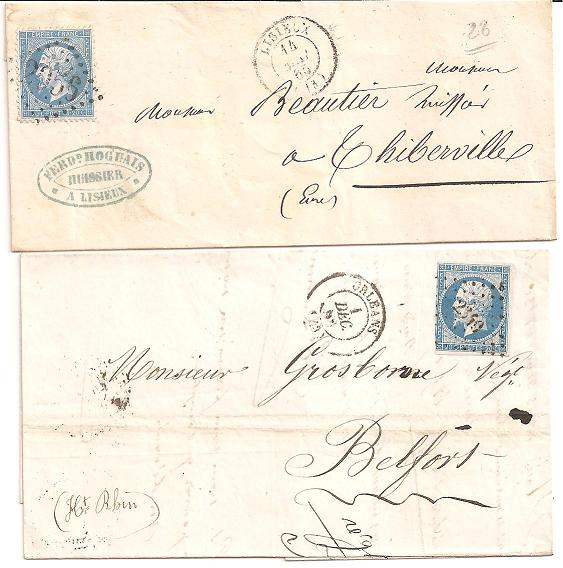 EMPIRE FRANC
LISIEUX
14
28
Monsieur
Monsieur Beautier huissier
a Thiberville
(Eure)
FERDD HOGUAIS
HUISSIER
A LISIEUX
EMPIRE FRANC
ORLEANS
1
DEC.
Monsieur Grosborne Négt
Belfort
(Ht Rhin)